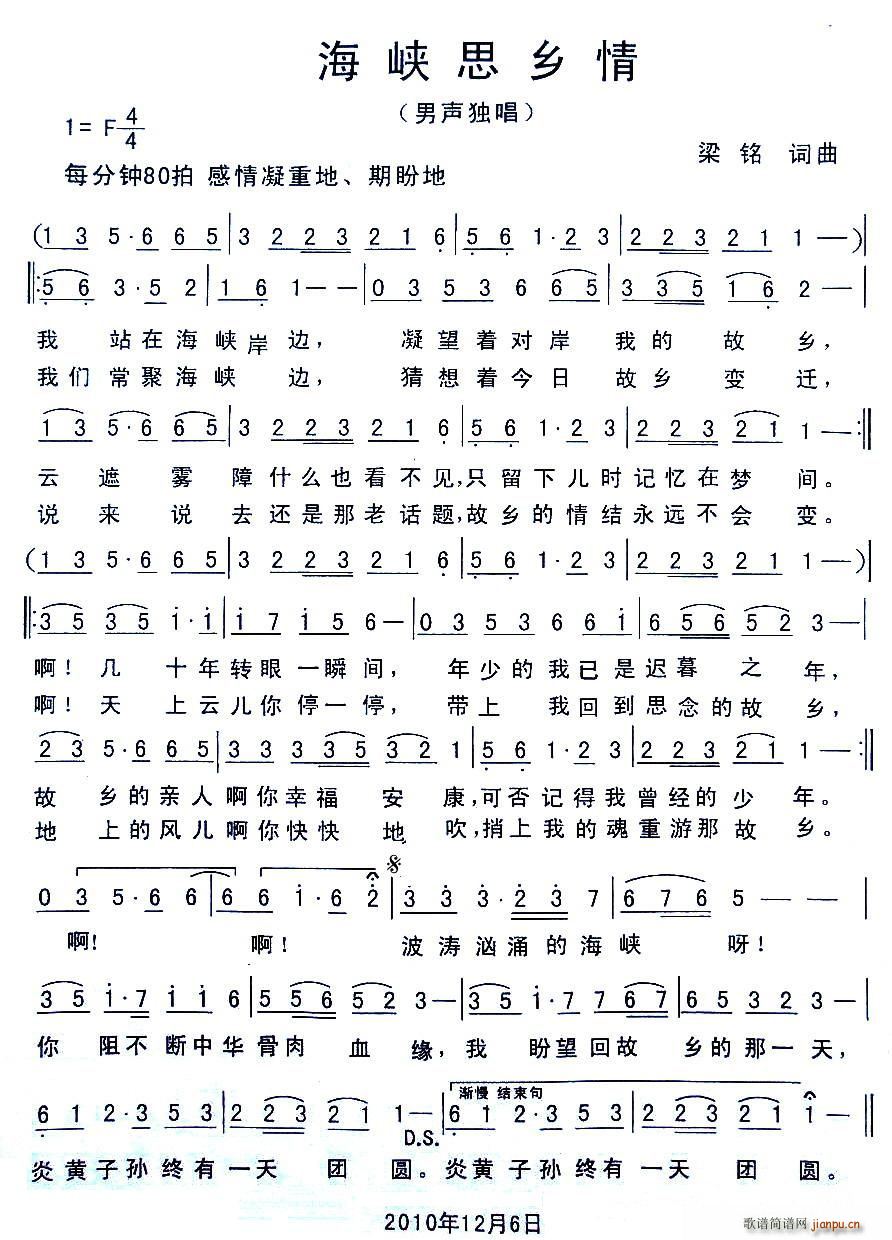 海峡思乡情
（男声独唱）
1= F 4/4
梁铭 词曲
每分钟80拍 感情凝重地、期盼地
(1 3 5·6 6 5 | 3 2 2 3 2 1 6 | 5 6 1·2 3 | 2 2 3 2 1 1 —)|
‖: 5 6 3·5 2 | 1 6 1 — — | 0 3 5 3 6 5 6 5 | 3 3 5 1 6 2 — |
我 站在海峡岸边， 凝望着对岸 我的 故 乡，
我们常聚海峡 边， 猜想着今日 故乡 变 迁，
1 3 5·6 6 5 | 3 2 2 3 2 2 1 6 | 5 6 1·2 3 | 2 2 3 2 1 1 — :‖
云 遮 雾 障什么也看不见,只留下儿时记忆在梦 间。
说 来 说 去还是那老话题,故乡的情结永远不会 变。
(1 3 5·6 6 5 | 3 2 2 3 2 1 6 | 5 6 1·2 3 | 2 2 3 2 1 1 —)|
‖: 3 5 3 5 1·1 | 1 7 1 5 6 — | 0 3 5 3 6 6 1 | 6 5 6 5 2 3 — |
啊！几 十年转眼一瞬间， 年少的我已是迟暮 之 年，
啊！天 上云儿你停一停， 带上 我回到思念的故 乡，
2 3 5·6 6 5 | 3 3 3 3 5 3 2 1 | 5 6 1·2 3 | 2 2 3 2 1 1 — :‖
故 乡的亲人啊你幸福 安 康,可否记得我曾经的少 年。
地 上的风儿啊你快快 地 吹,捎上我的魂重游那故 乡。
0 3 5·6 6 | 6 6 1·6 2 | 3 3 3·2 3 7 | 6 7 6 5 — — |
啊! 啊! 波涛汹涌的海峡 呀!
3 5 1·7 1 1 6 | 5 5 6 5 2 3 — | 3 5 1·7 7 6 7 | 6 5 3 2 3 — |
你 阻不断中华骨肉 血 缘,我 盼望回故 乡的那一天,
渐慢 结束句
6 1 2·3 5 3 | 2 2 3 2 1 1 — | 6 1 2·3 5 3 | 2 2 3 2 1 1 — ‖
D.S.
炎黄子孙终有一天 团 圆。炎黄子孙终有一天 团 圆。
2010年12月6日
歌谱简谱网 jianpu.cn